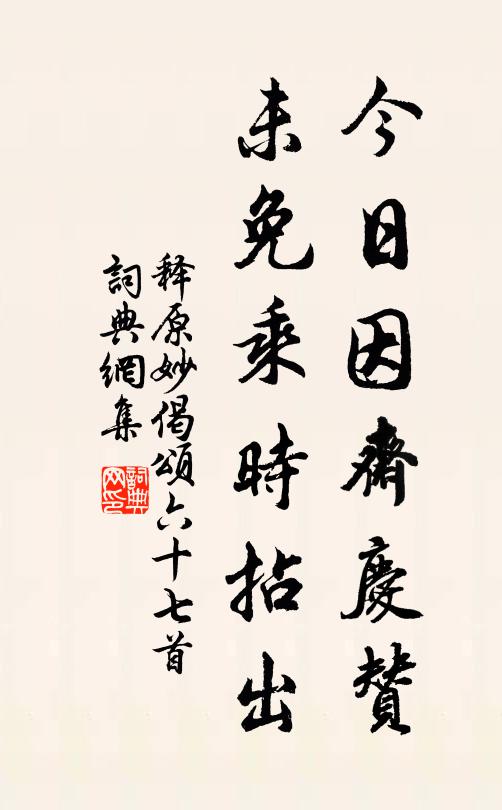 今日因齋慶贊
未免乘時拈出
释原妙偈頌六十七首
詞典網集
詞典网印